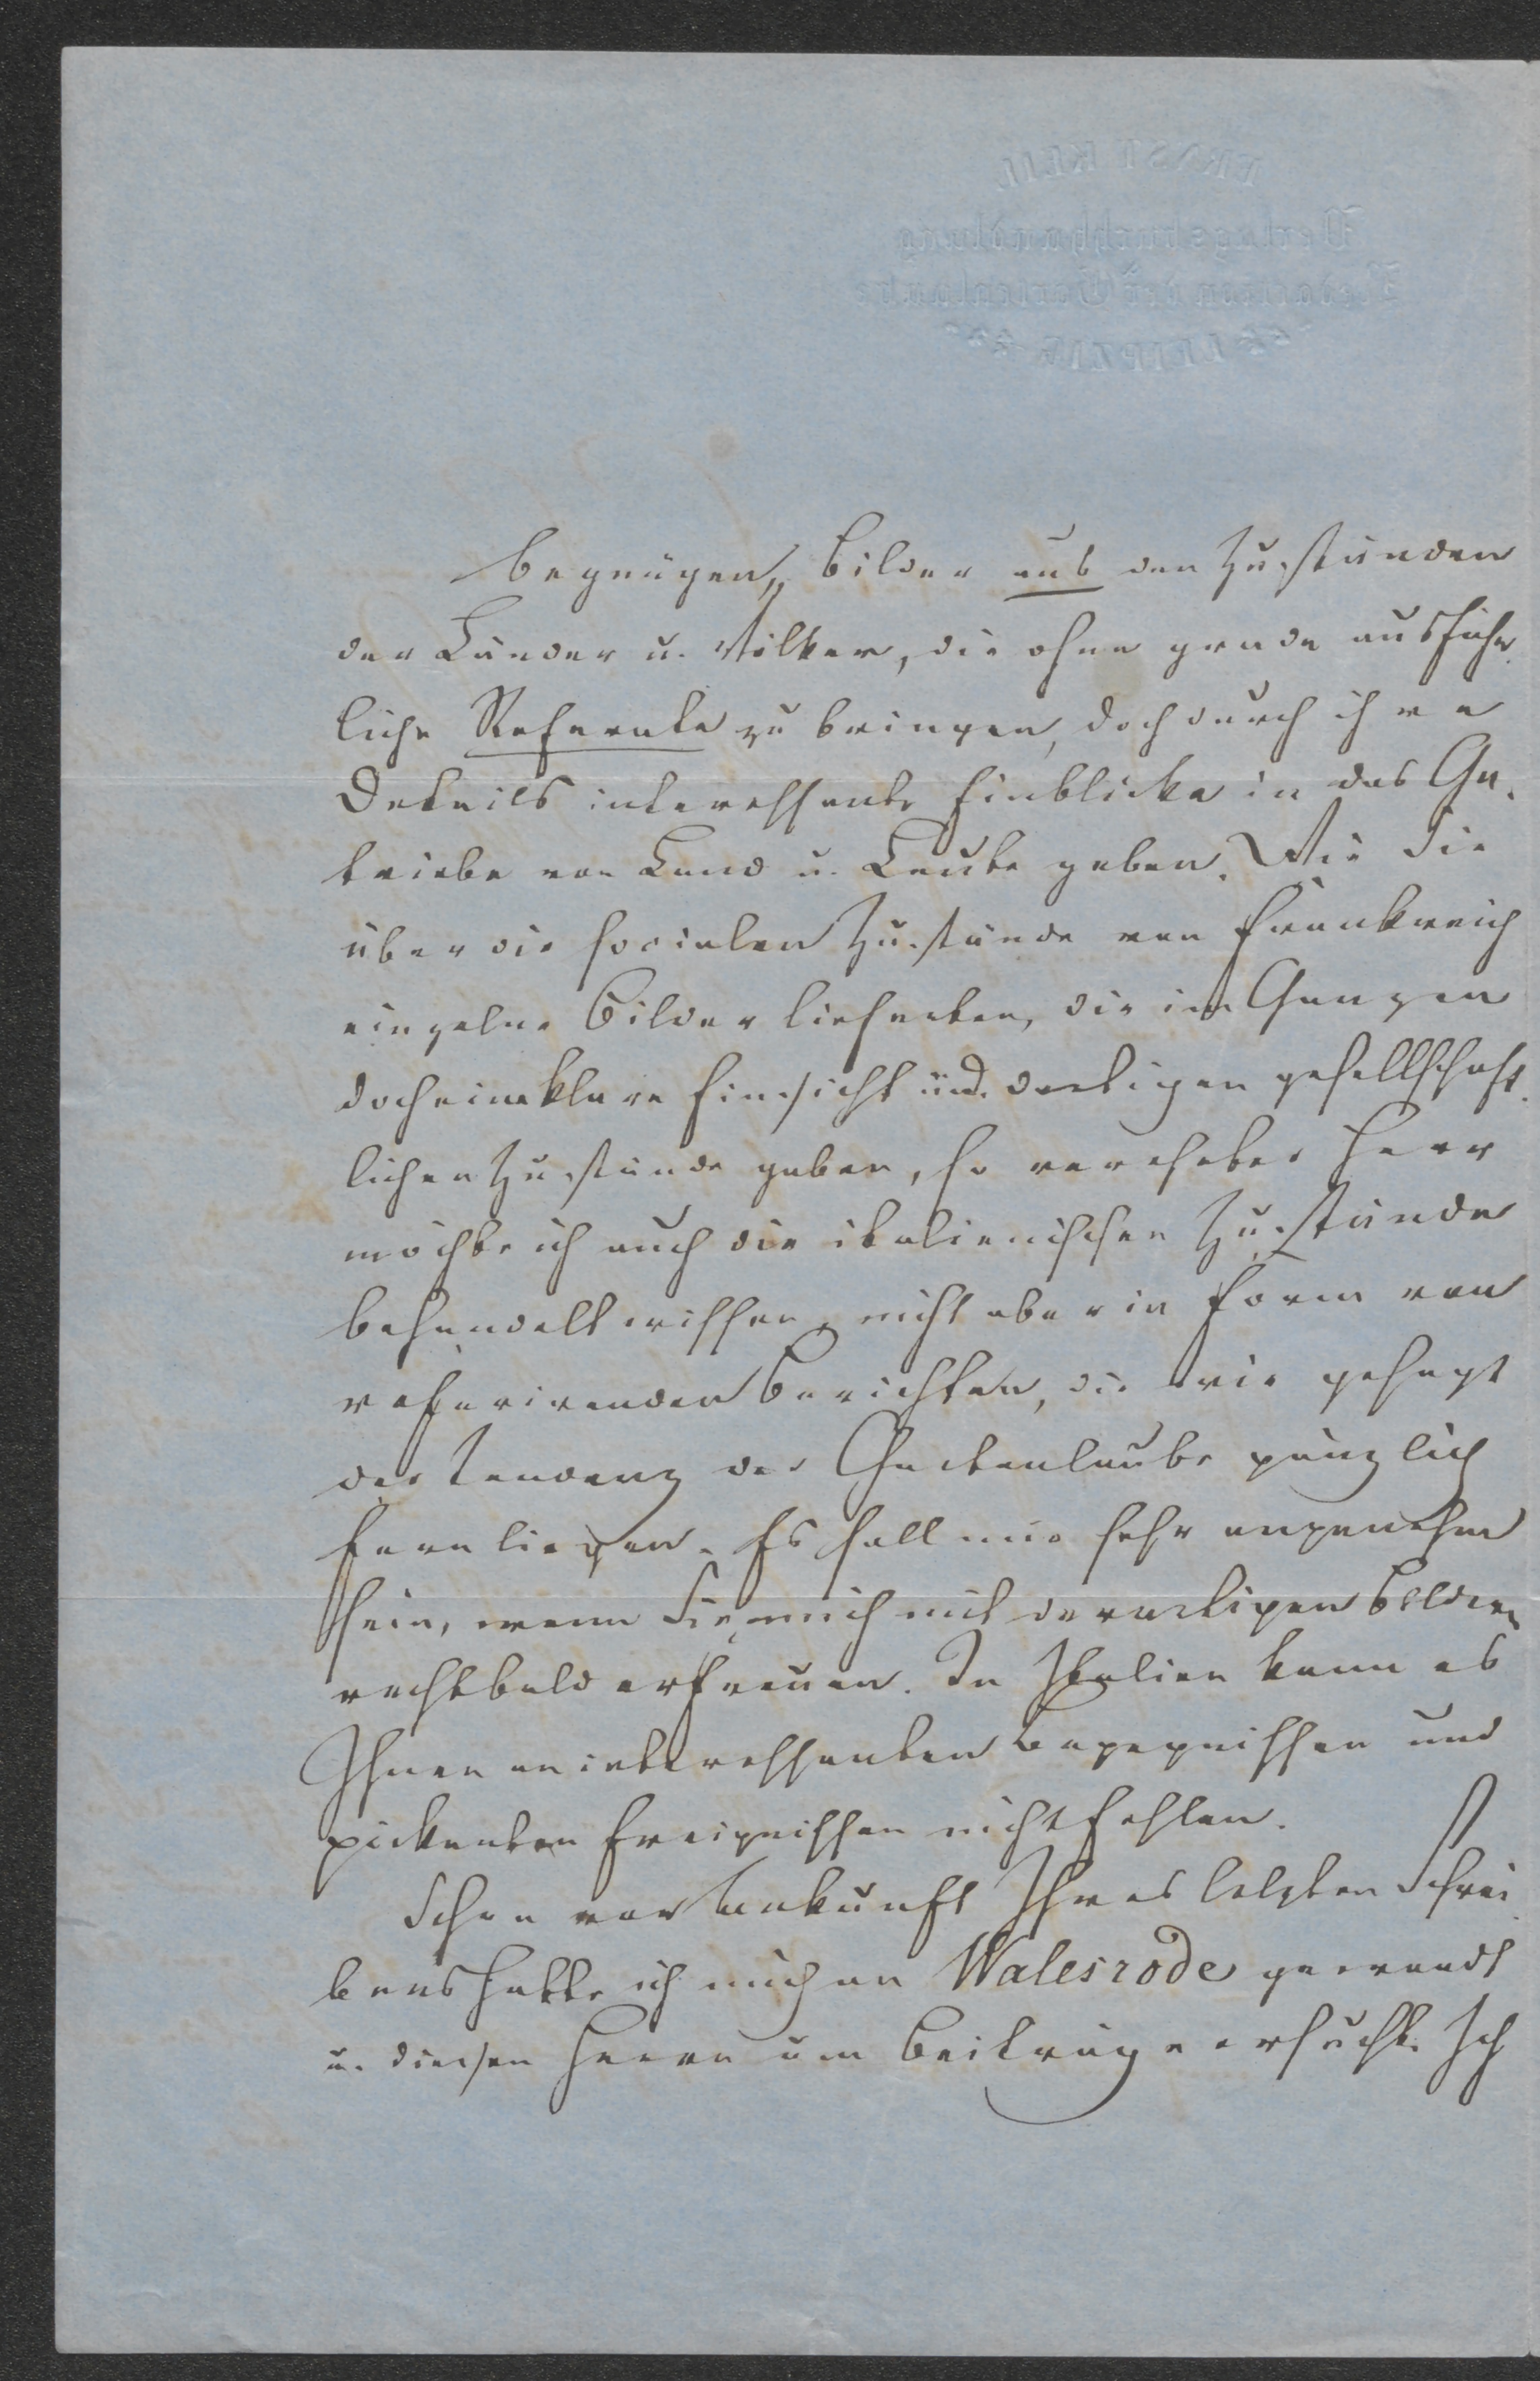 ERNST KEIL
Verlagsbuchhandlung
Redaction der Gartenlaube
LEIPZIG
begnügen, Bilder aus den Zuständen
der Länder u. Völker, die ohne grade ausführ-
liche Referate zu bringen, doch durch ihre
Details interessante Einblicke in das Ge-
triebe von Land u. Leute geben. Wie Sie
über die socialen Zustände von Frankreich
einzelne Bilder lieferten, die im Ganzen
doch eine klare Einsicht in d. dortigen gesellschaft-
lichen Zustände gaben, so verehrter Herr
möchte ich auch die italienischen Zustände
behandelt wissen, nicht aber in Form von
referirenden Berichten, die wie gesagt
der Tendenz der Gartenlaube gänzlich
fern liegen. Es soll mir sehr angenehm
sein, wenn Sie mich mit derartigen Bildern
recht bald erfreuen. In Italien kann es
Ihnen an interessanten Begegnissen und
pickanten Ereignissen nicht fehlen.
Schon vor Ankunft Ihres letzten Schrei-
bens hatte ich mich an Walesrode gewandt
u. diesen Herrn um Beiträge ersucht. Ich